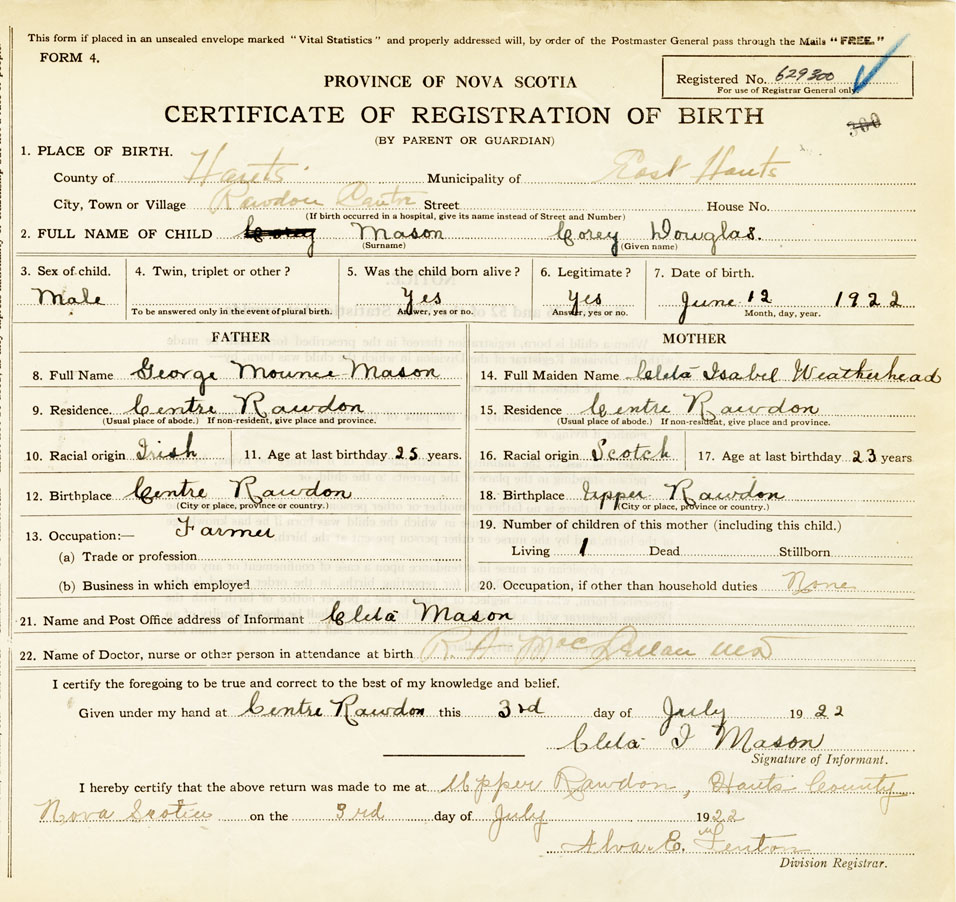 This form if placed in an unsealed envelope marked "Vital Statistics" and properly addressed will, by order of the Postmaster General pass through the Mails "FREE."
FORM 4.
PROVINCE OF NOVA SCOTIA
Registered No. 629300
For use of Registrar General only.
CERTIFICATE OF REGISTRATION OF BIRTH
300
(BY PARENT OR GUARDIAN)
1. PLACE OF BIRTH.
County of Hants Municipality of East Hants
City, Town or Village Rawdon Centre Street House No.
(If birth occurred in a hospital, give its name instead of Street and Number)
2. FULL NAME OF CHILD Corey Mason Corey Douglas.
(Surname) (Given name)
3. Sex of child. 4. Twin, triplet or other? 5. Was the child born alive? 6. Legitimate? 7. Date of birth.
Male Yes Yes June 12 1922
To be answered only in the event of plural birth. Answer, yes or no. Answer, yes or no. Month, day, year.
FATHER MOTHER
8. Full Name George Mounce Mason 14. Full Maiden Name Cleta Isabel Weatherhead
9. Residence. Centre Rawdon 15. Residence Centre Rawdon
(Usual place of abode.) If non-resident, give place and province. (Usual place of abode.) If non-resident, give place and province.
10. Racial origin Irish 11. Age at last birthday 25 years. 16. Racial origin Scotch 17. Age at last birthday 23 years
12. Birthplace Centre Rawdon 18. Birthplace Upper Rawdon
(City or place, province or country.) (City or place, province or country.)
13. Occupation:— Farmer 19. Number of children of this mother (including this child.)
(a) Trade or profession Living 1 Dead Stillborn
(b) Business in which employed 20. Occupation, if other than household duties None
21. Name and Post Office address of Informant Cleta Mason
22. Name of Doctor, nurse or other person in attendance at birth R. A. MacLellan MD
I certify the foregoing to be true and correct to the best of my knowledge and belief.
Given under my hand at Centre Rawdon this 3rd day of July 1922
Cleta I Mason
Signature of Informant.
I hereby certify that the above return was made to me at Upper Rawdon, Hants County
Nova Scotia on the 3rd day of July 1922
Alvar E. Fenton
Division Registrar.